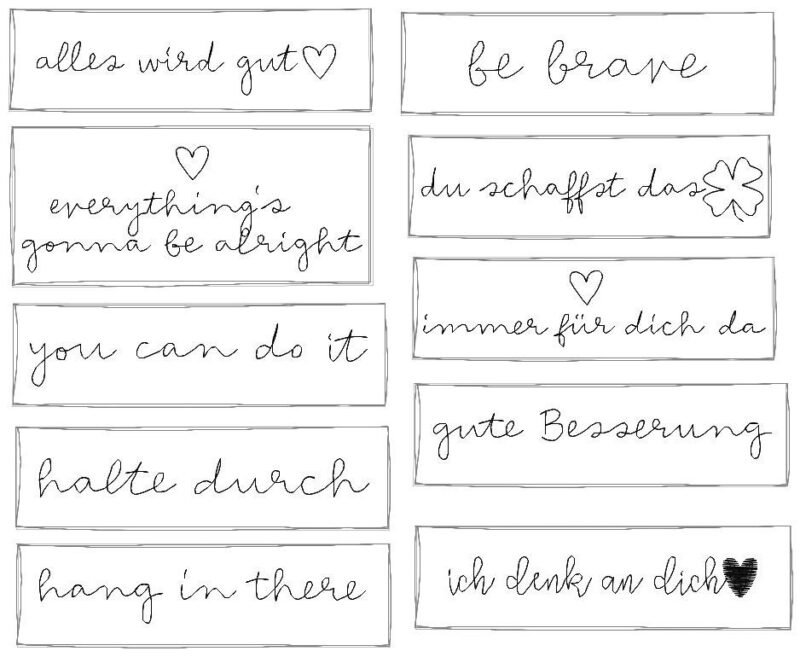 alles wird gut
everything's
gonna be alright
you can do it
halte durch
hang in there
be brave
du schaffst das
immer für dich da
gute Besserung
ich denk an dich